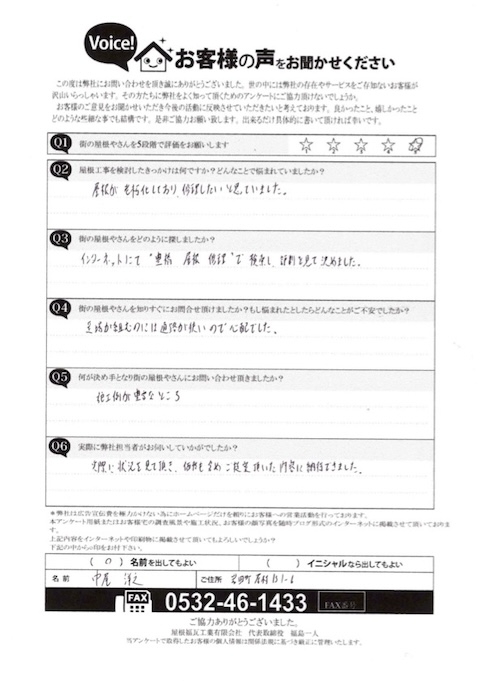 Voice! お客様の声をお聞かせください
この度は弊社にお問い合わせを頂き誠にありがとうございました。世の中には弊社の存在やサービスをご存知ないお客様が
沢山いらっしゃいます。その方たちに弊社をよく知って頂くためのアンケートにご協力頂けないでしょうか。
お客様のご意見をお聞かせいただき今後の活動に反映させていただきたいと考えております。良かったこと、感しかったこと
どのような些細な事でも結構です。是非ご協力お願い致します。出来るだけ具体的に書いて頂ければ幸いです。
Q1 街の屋根やさんを5段階で評価をお願いします
Q2 屋根工事を検討したきっかけは何ですか？どんなことで悩まれていましたか？
屋根が老朽化しており、修理したいと思っていました。
Q3 街の屋根やさんをどのように探しましたか？
インターネットにて"豊橋 屋根 修理"で検索し、評判を見て決めました。
Q4 街の屋根やさんを知りすぐにお問合せ頂けましたか？もし悩まれたとしたらどんなことがご不安でしたか？
足場が組むのには道路が狭いので心配でした。
Q5 何が決め手となり街の屋根やさんにお問い合わせ頂きましたか？
施工例が豊富なところ
Q6 実際に弊社担当者がお伺いしていかがでしたか？
実際に状況を見て頂き、価格も含めご提案頂いた内容に納得できました。
＊弊社は広告宣伝費を極力かけない為にホームページだけを頼りにお客様への営業活動を行っております。
本アンケート用紙またはお客様宅の調査風景や施工状況、お客様の顔写真を随時ブログ形式のインターネットに掲載させて頂いております。
上記内容をインターネットや印刷物に掲載させて頂いてもよろしいでしょうか？
下記の中から○印をお付下さい。
（ ○ ）名前を出してもよい （ ）イニシャルなら出してもよい
名前 中尾 ご住所
FAX 0532-46-1433 FAX番号
ご協力ありがとうございました。
屋根福瓦工業有限会社 代表取締役 福島一人
当アンケートで取得したお客様の個人情報は関係法規に基づき厳正に管理いたします。